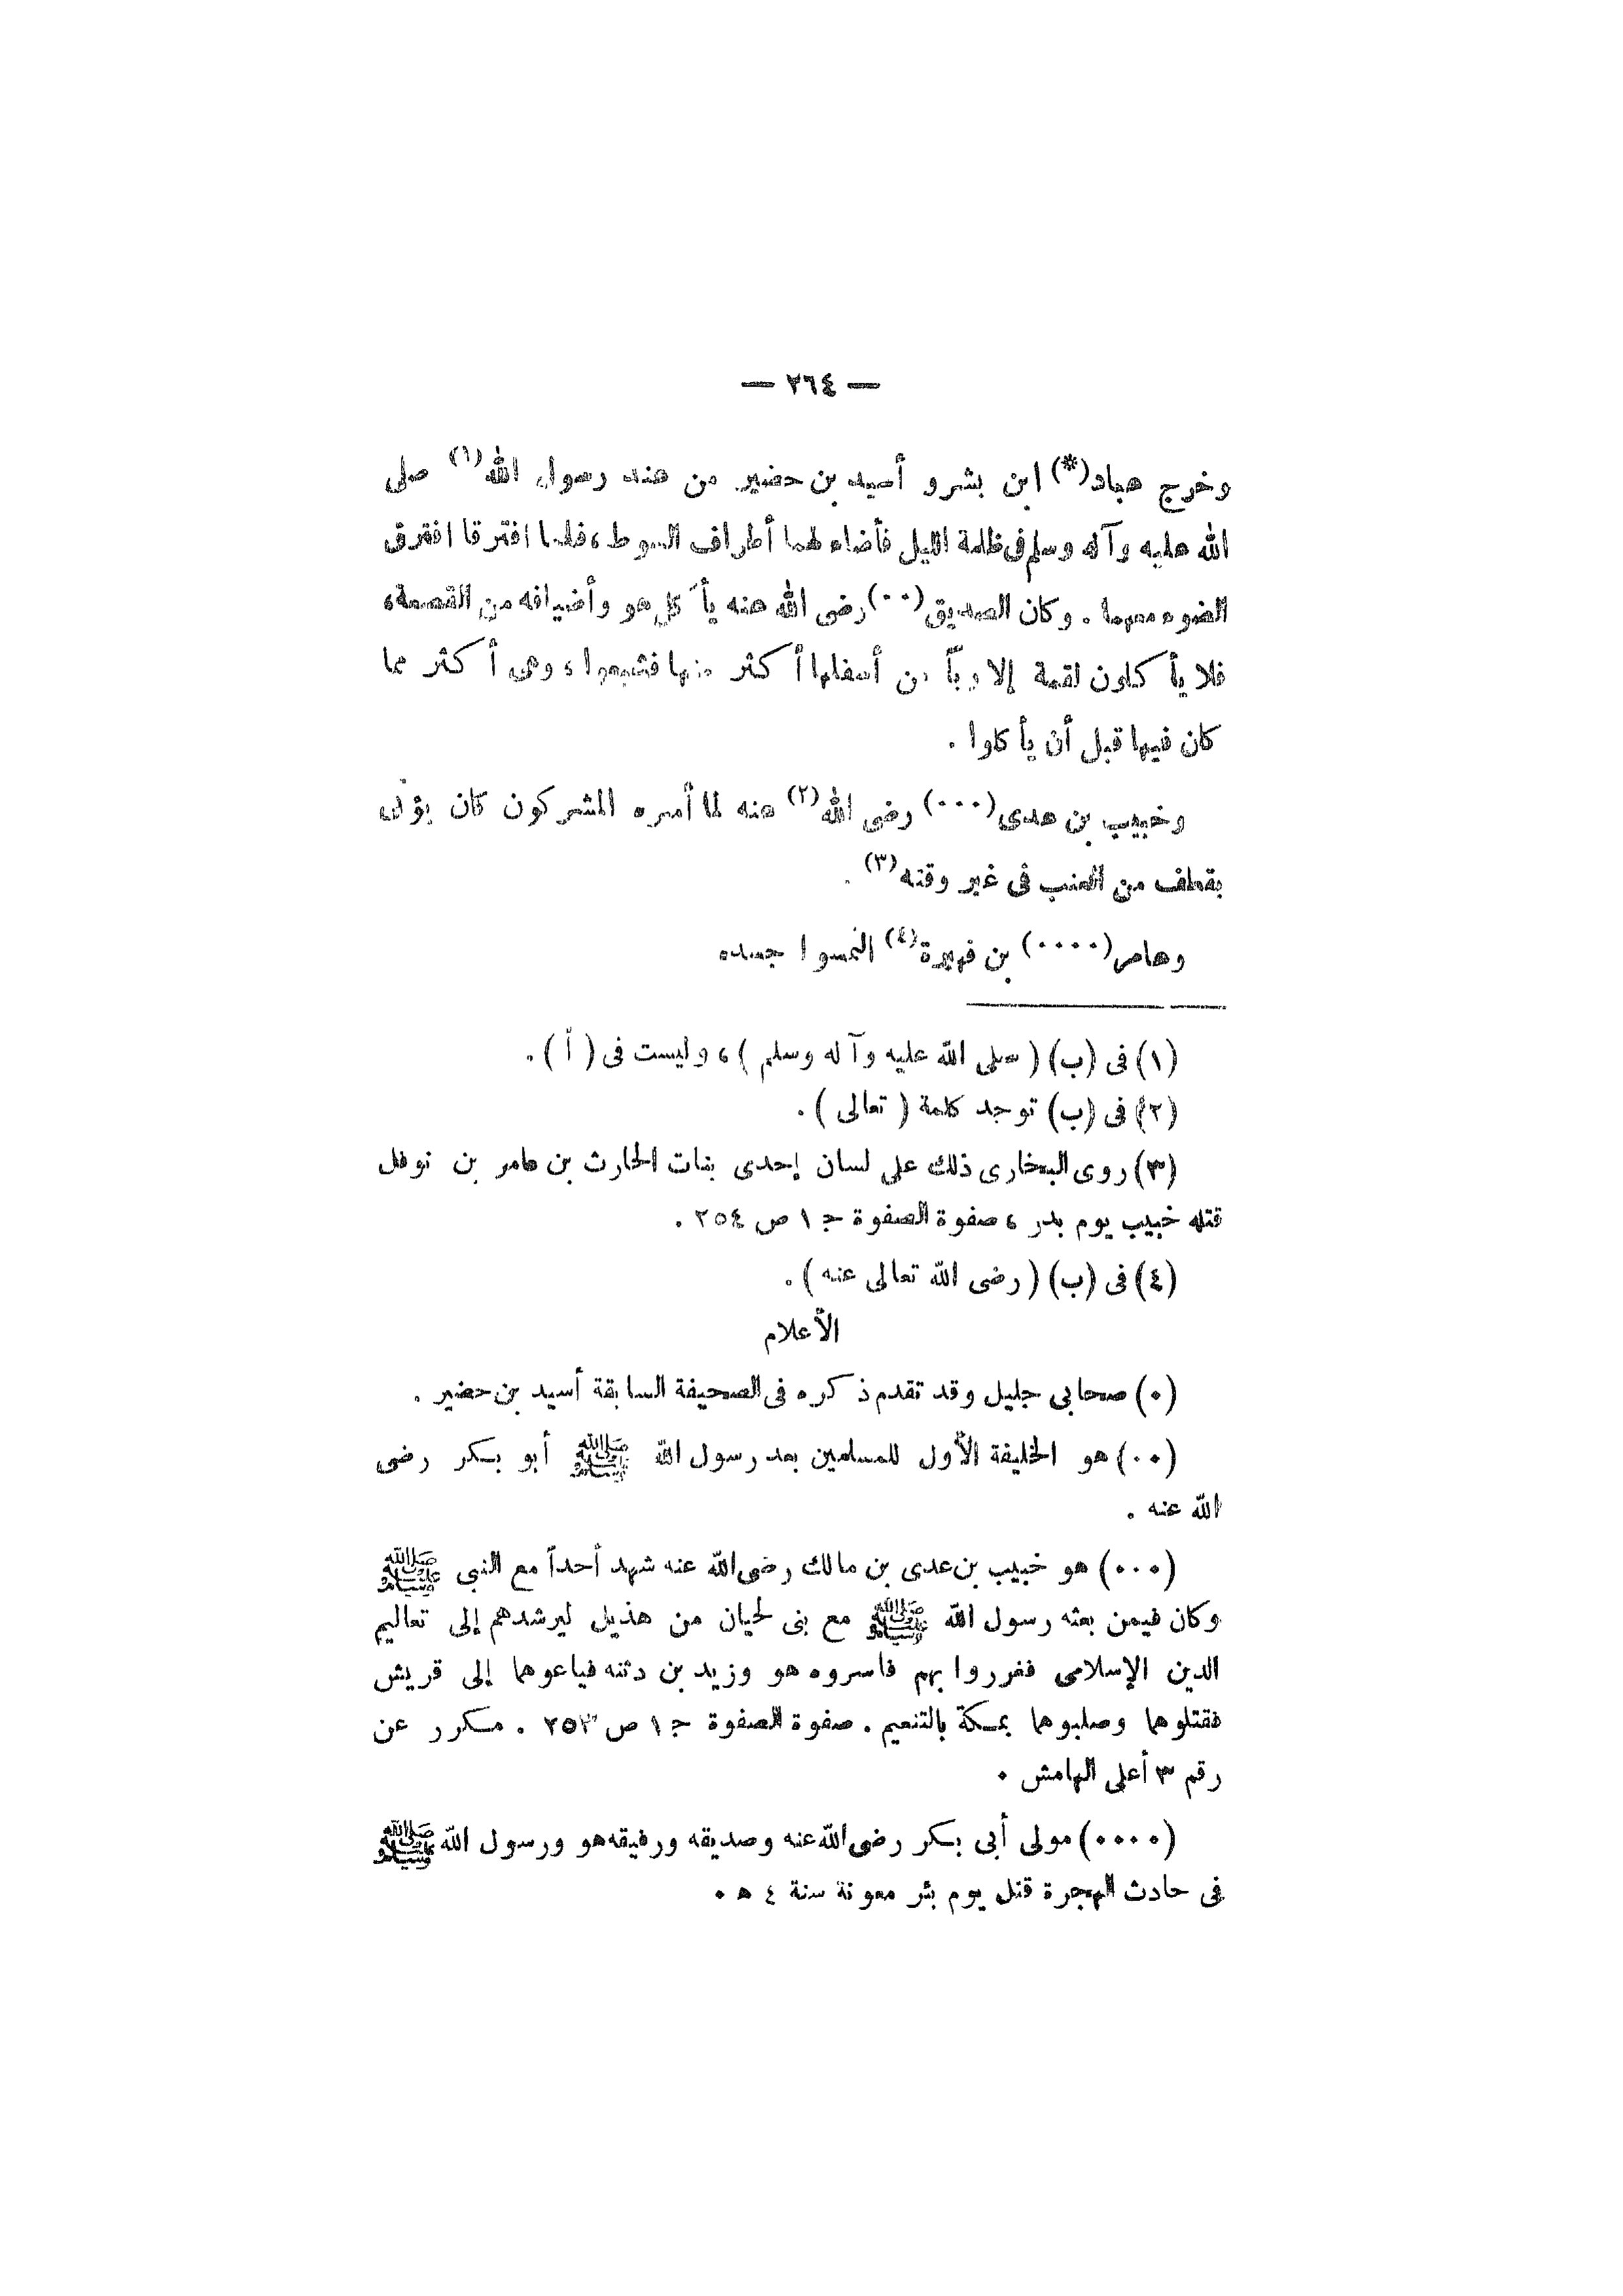 — ٢٦٤ —
وخرج عباد(*) ابن بشر و أسيد بن حضير من عند رسول الله(١) صلى
الله عليه وآله وسلم فى ظلمة الليل فأضاء لهما أطراف السوط ، فلما افترقا افترق
الضوء معهما . وكان الصديق(٠٠) رضى الله عنه يأكل هو وأضيافه من القصعة ،
فلا يأكلون لقمة إلا ربا من أسفلها أكثر منها فشبعوا ، وهى أكثر مما
كان فيها قبل أن يأكلوا .
وخبيب بن عدى(٠٠٠) رضى الله(٢) عنه لما أسره المشركون كان يؤتى
بقطف من العنب فى غير وقته(٣) .
وعامر(٠٠٠٠) بن فهيرة(٤) التمسوا جسده
(١) فى (ب) ( صلى الله عليه وآله وسلم ) ، وليست فى ( أ ) .
(٢) فى (ب) توجد كلمة ( تعالى ) .
(٣) روى البخارى ذلك على لسان إحدى بنات الحارث بن عامر بن نوفل
قتله خبيب يوم بدر ، صفوة الصفوة ج ١ ص ٢٥٤ .
(٤) فى (ب) ( رضى الله تعالى عنه ) .
الأعلام
(٠) صحابى جليل وقد تقدم ذكره فى الصحيفة السابقة أسيد بن حضير .
(٠٠) هو الخليفة الأول للمسلمين بعد رسول الله ﷺ أبو بكر رضى
الله عنه .
(٠٠٠) هو خبيب بن عدى بن مالك رضى الله عنه شهد أحداً مع النبى ﷺ
وكان فيمن بعثه رسول الله ﷺ مع بنى لحيان من هذيل ليرشدهم إلى تعاليم
الدين الإسلامى فغرروا بهم فاسروه هو وزيد بن دثنه فباعوهما إلى قريش
فقتلوهما وصلبوهما بمكة بالتنعيم . صفوة الصفوة ج ١ ص ٢٥٣ . مكرر عن
رقم ٣ أعلى الهامش .
(٠٠٠٠) مولى أبى بكر رضى الله عنه وصديقه ورفيقه هو ورسول الله ﷺ
فى حادث الهجرة قتل يوم بئر معونة سنة ٤ ه .